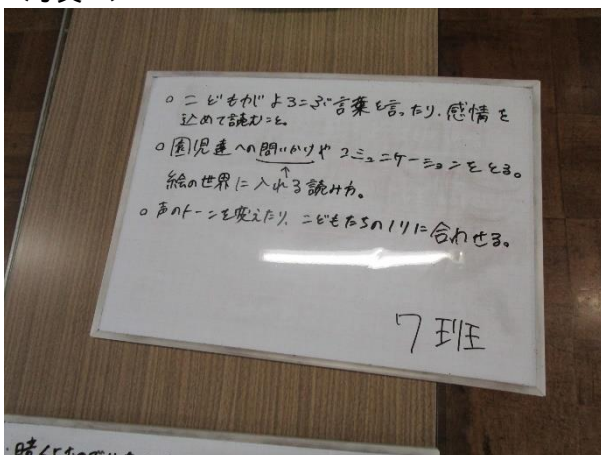 ○ こどもがよろこぶ言葉を言ったり、感情を
込めて読むこと。
○ 園児達への問いかけやコミュニケーションをとる。
↑
絵の世界に入れる読み方。
○ 声のトーンを変えたり、こどもたちのノリに合わせる。
7班